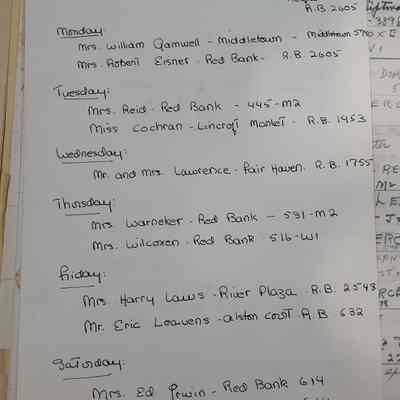 R.B. 2605
Monday:
Mrs. William Gamwell - Middletown - Middletown 5790 X
Mrs. Robert Eisner - Red Bank - R.B. 2605
Tuesday:
Mrs. Reid - Red Bank - 445-M2
Miss Cochran - Lincroft Market - R.B. 1953
Wednesday:
Mr. and Mrs. Lawrence - Fair Haven. R.B. 1755
Thursday:
Mrs. Warneker - Red Bank - 531-M2
Mrs. Wilcoxen - Red Bank 516-W1
Friday:
Mrs. Harry Laws - River Plaza R.B. 2543
Mr. Eric Leavens - Alston Court R.B 632
Saturday:
Mrs. Ed Irwin - Red Bank 614